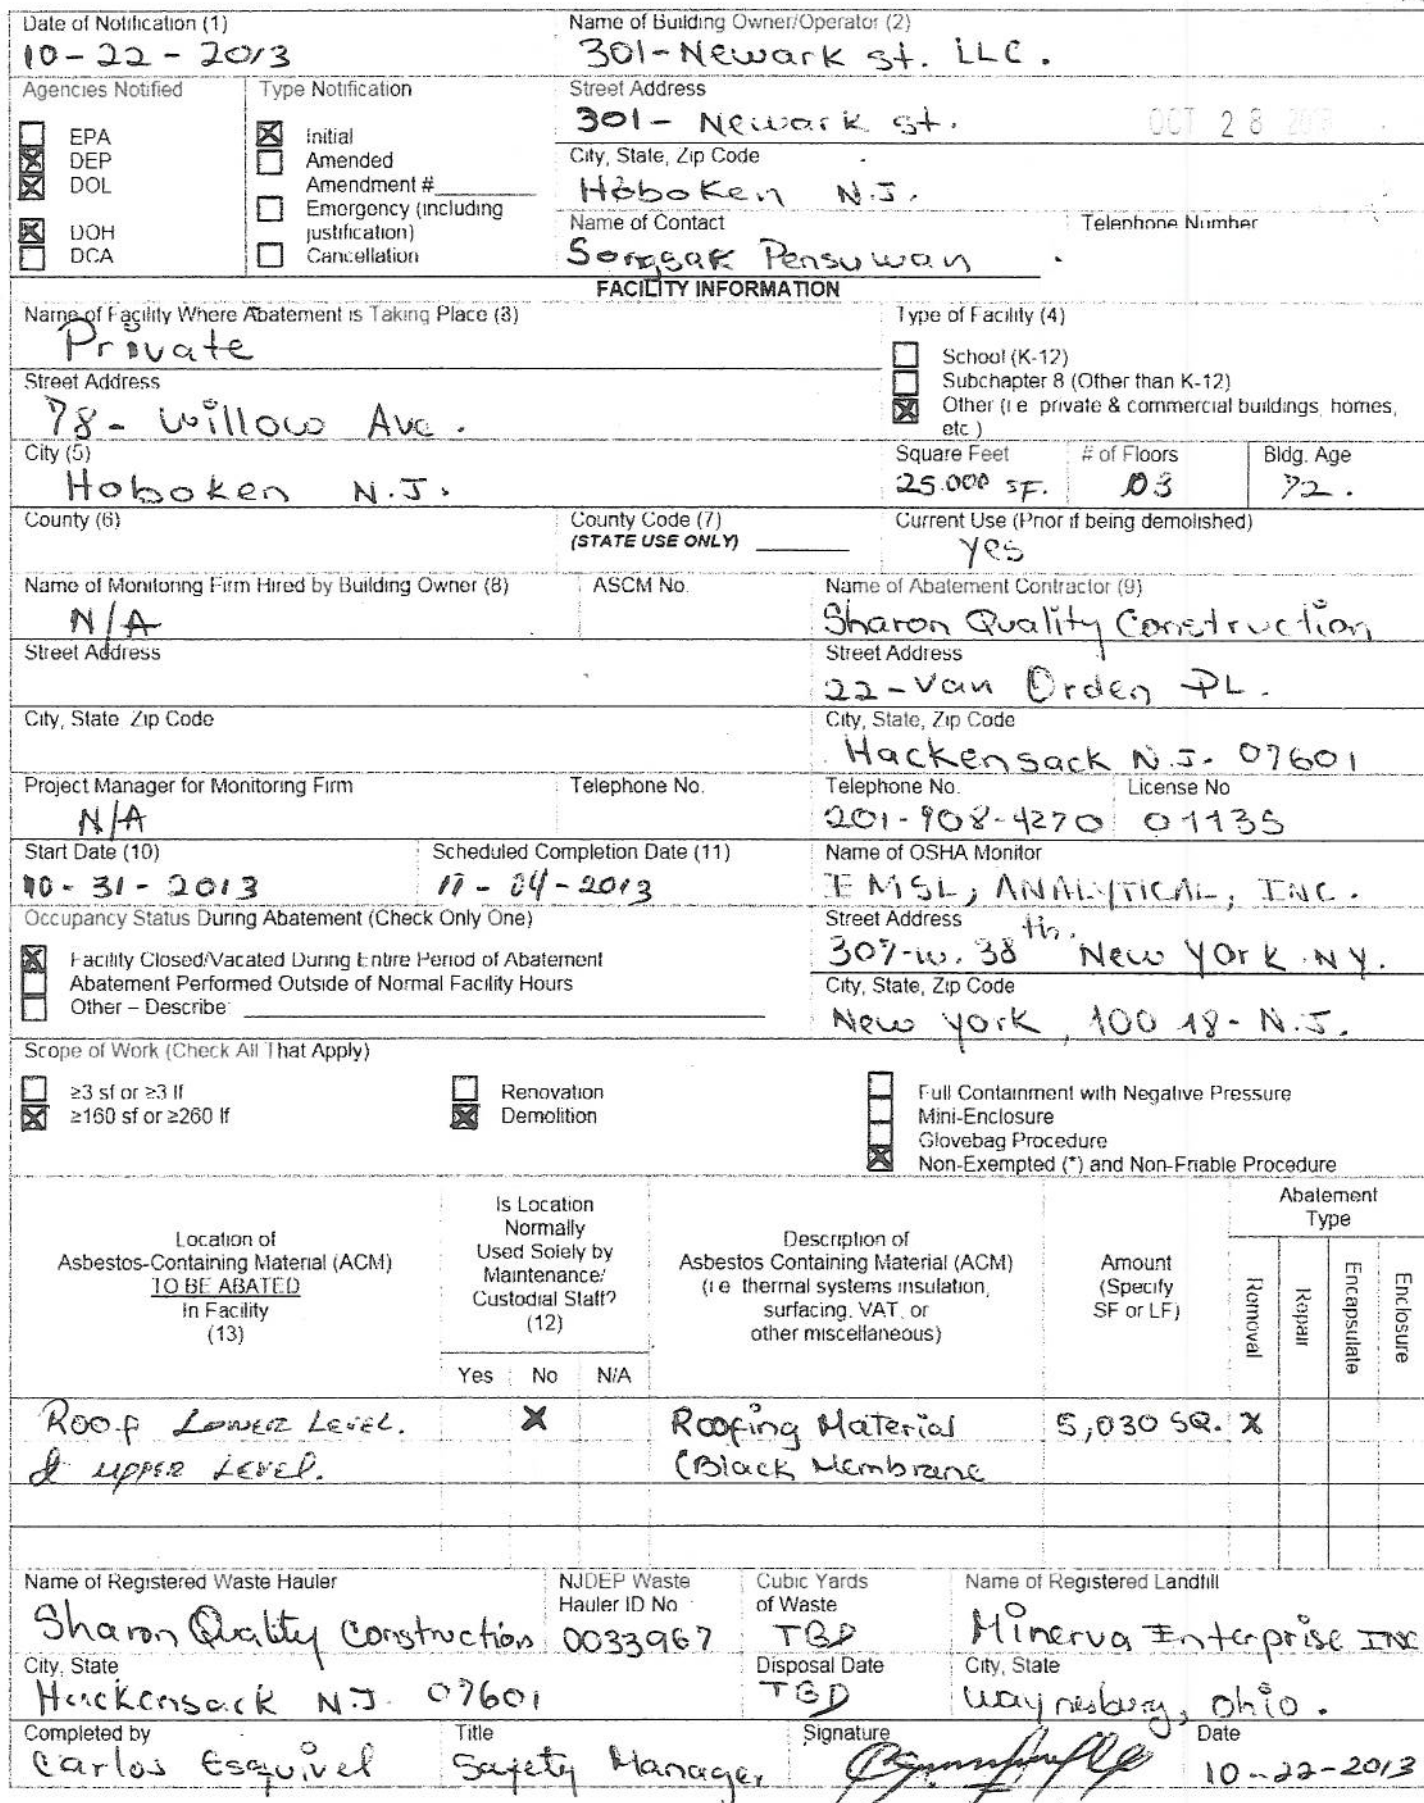 Date of Notification (1)
10-22-2013
Name of Building Owner/Operator (2)
301-Newark st. LLC.
Agencies Notified
EPA
DEP
DOL
DOH
DCA
Type Notification
Initial
Amended
Amendment #
Emergency (including
justification)
Cancellation
Street Address
301- Newark st.
OCT 28 2013
City, State, Zip Code
Hoboken N.J.
Name of Contact
Telephone Number
Songsak Pensuwan
FACILITY INFORMATION
Name of Facility Where Abatement is Taking Place (3)
Private
Type of Facility (4)
School (K-12)
Subchapter 8 (Other than K-12)
Other (i e private & commercial buildings, homes,
etc )
Street Address
78- Willow Ave.
City (5)
Hoboken N.J.
Square Feet
25.000 SF.
# of Floors
03
Bldg. Age
72.
County (6)
County Code (7)
(STATE USE ONLY)
Current Use (Prior if being demolished)
Yes
Name of Monitoring Firm Hired by Building Owner (8)
N/A
ASCM No.
Name of Abatement Contractor (9)
Sharon Quality Construction
Street Address
Street Address
22-Van Orden PL.
City, State Zip Code
City, State, Zip Code
Hackensack N.J. 07601
Project Manager for Monitoring Firm
N/A
Telephone No.
Telephone No.
201-908-4270
License No
01135
Start Date (10)
10-31-2013
Scheduled Completion Date (11)
11-04-2013
Name of OSHA Monitor
EMSL, ANALYTICAL, INC.
Occupancy Status During Abatement (Check Only One)
Facility Closed/Vacated During Entire Period of Abatement
Abatement Performed Outside of Normal Facility Hours
Other – Describe
Street Address
307-W. 38th. New York NY.
City, State, Zip Code
New York, 10018- N.J.
Scope of Work (Check All That Apply)
≥3 sf or ≥3 lf
≥160 sf or ≥260 lf
Renovation
Demolition
Full Containment with Negative Pressure
Mini-Enclosure
Glovebag Procedure
Non-Exempted (*) and Non-Friable Procedure
Location of
Asbestos-Containing Material (ACM)
TO BE ABATED
In Facility
(13)
Is Location
Normally
Used Solely by
Maintenance/
Custodial Staff?
(12)
Yes No N/A
Description of
Asbestos Containing Material (ACM)
(i e thermal systems insulation,
surfacing, VAT, or
other miscellaneous)
Amount
(Specify
SF or LF)
Abatement
Type
Removal
Repair
Encapsulate
Enclosure
Roof Lower Level. X Roofing Material 5,030 SQ. X
& upper Level. (Black Membrane
Name of Registered Waste Hauler
Sharon Quality Construction
NJDEP Waste
Hauler ID No
0033967
Cubic Yards
of Waste
TBD
Name of Registered Landfill
Minerva Enterprise INC
City, State
Hackensack N.J. 07601
Disposal Date
TBD
City, State
Waynesburg, Ohio.
Completed by
Carlos Esquivel
Title
Safety Manager
Signature
Date
10-22-2013